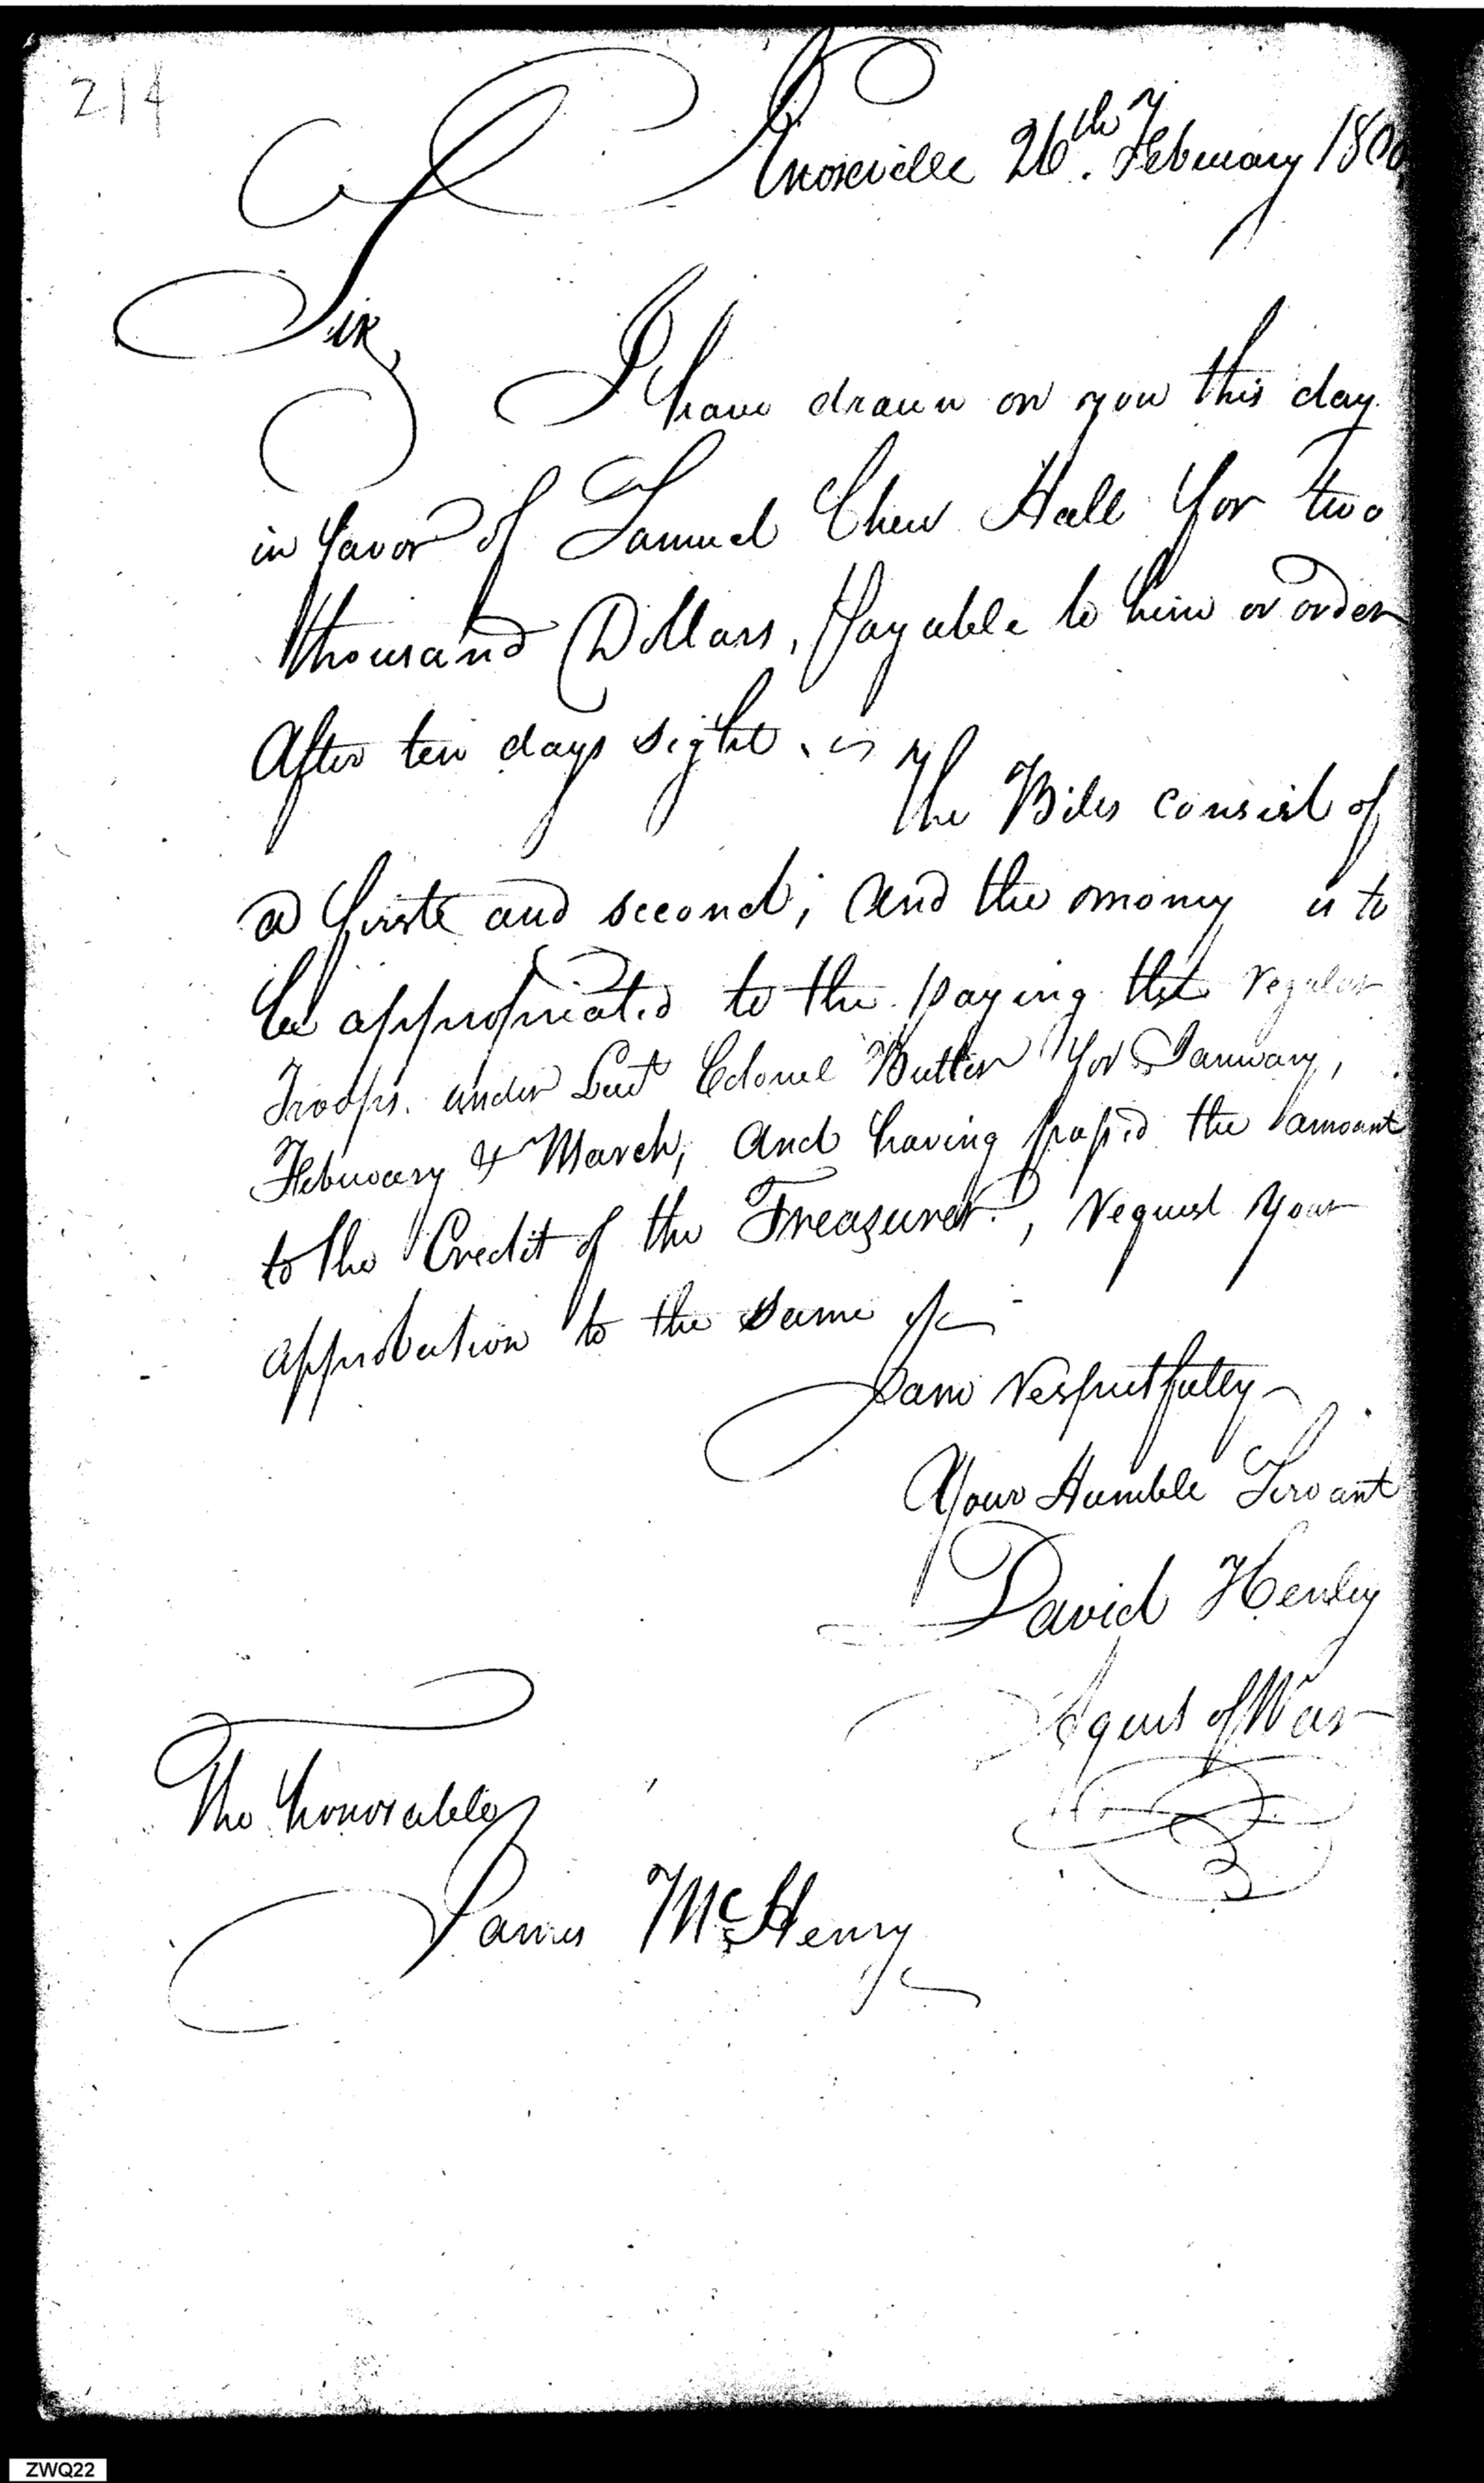 214
Knoxville 26th. February 1800
Sir,
I have drawn on you this day
in favor of Samuel Chew Hall for two
thousand Dollars, payable to him or order
After ten days sight.
The Biles consist of
a firste and second; And the money is to
be appropriated to the paying the regular
Troops under Lieut Colonel Butler for January,
February & March; And having passed the amount
to the Credit of the Treasurer, request your
approbation to the same
I am respectfully
Your Humble Servant
David Henley
Agent of War
The honorable
James McHenry
ZWQ22